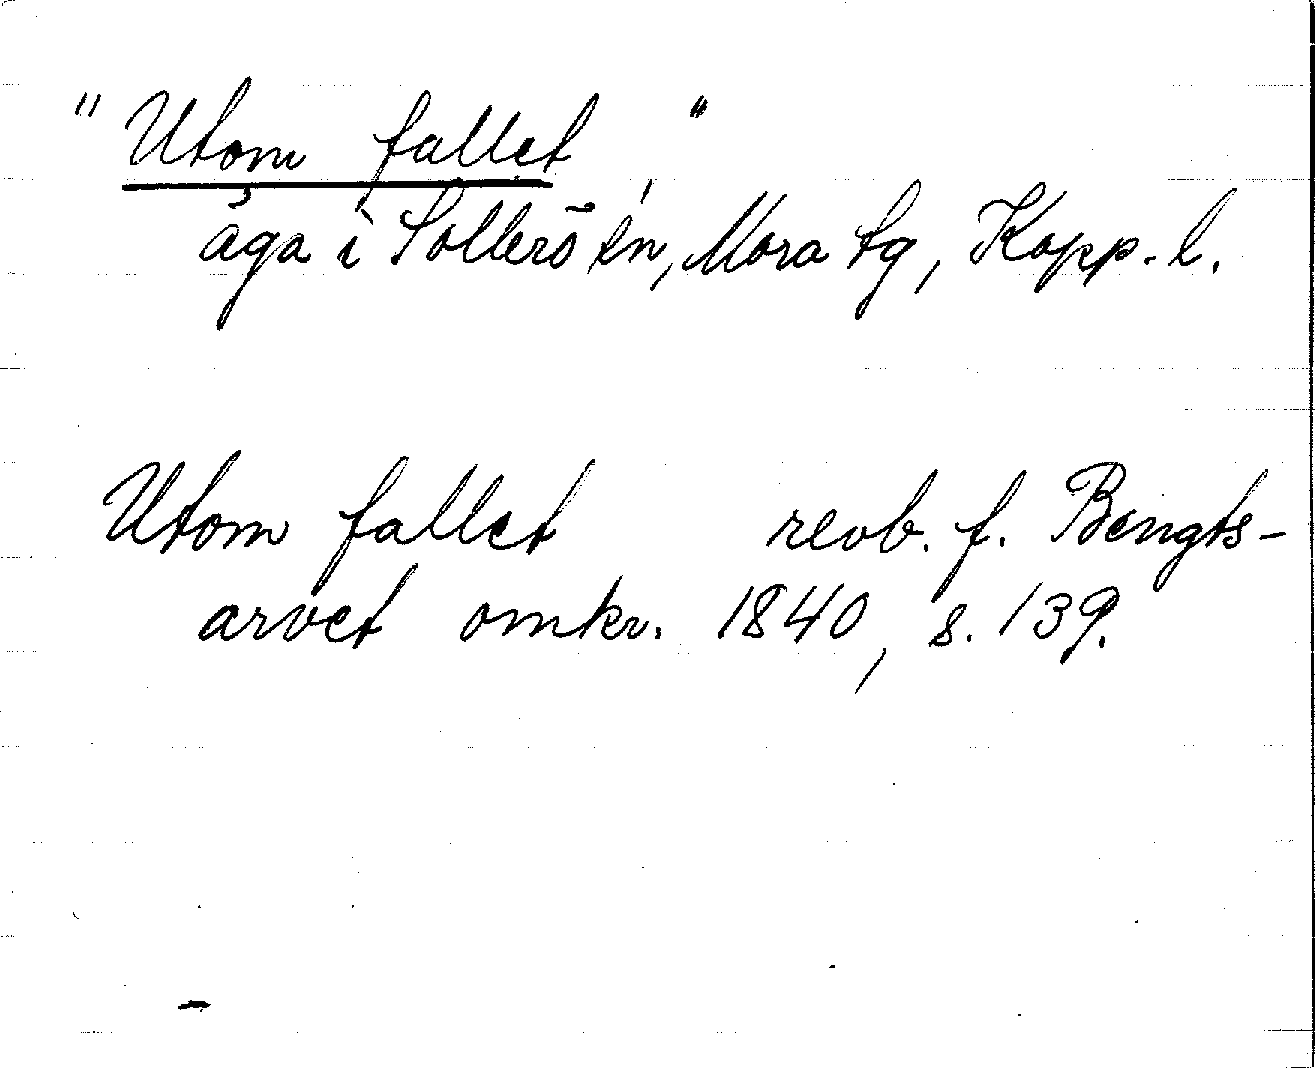 "Utom fallet"
åga i Sollerö sn, Mora tg, Kopp. l.
Utom fallet revb. f. Bengts-
arvet omkr. 1840, s. 139.